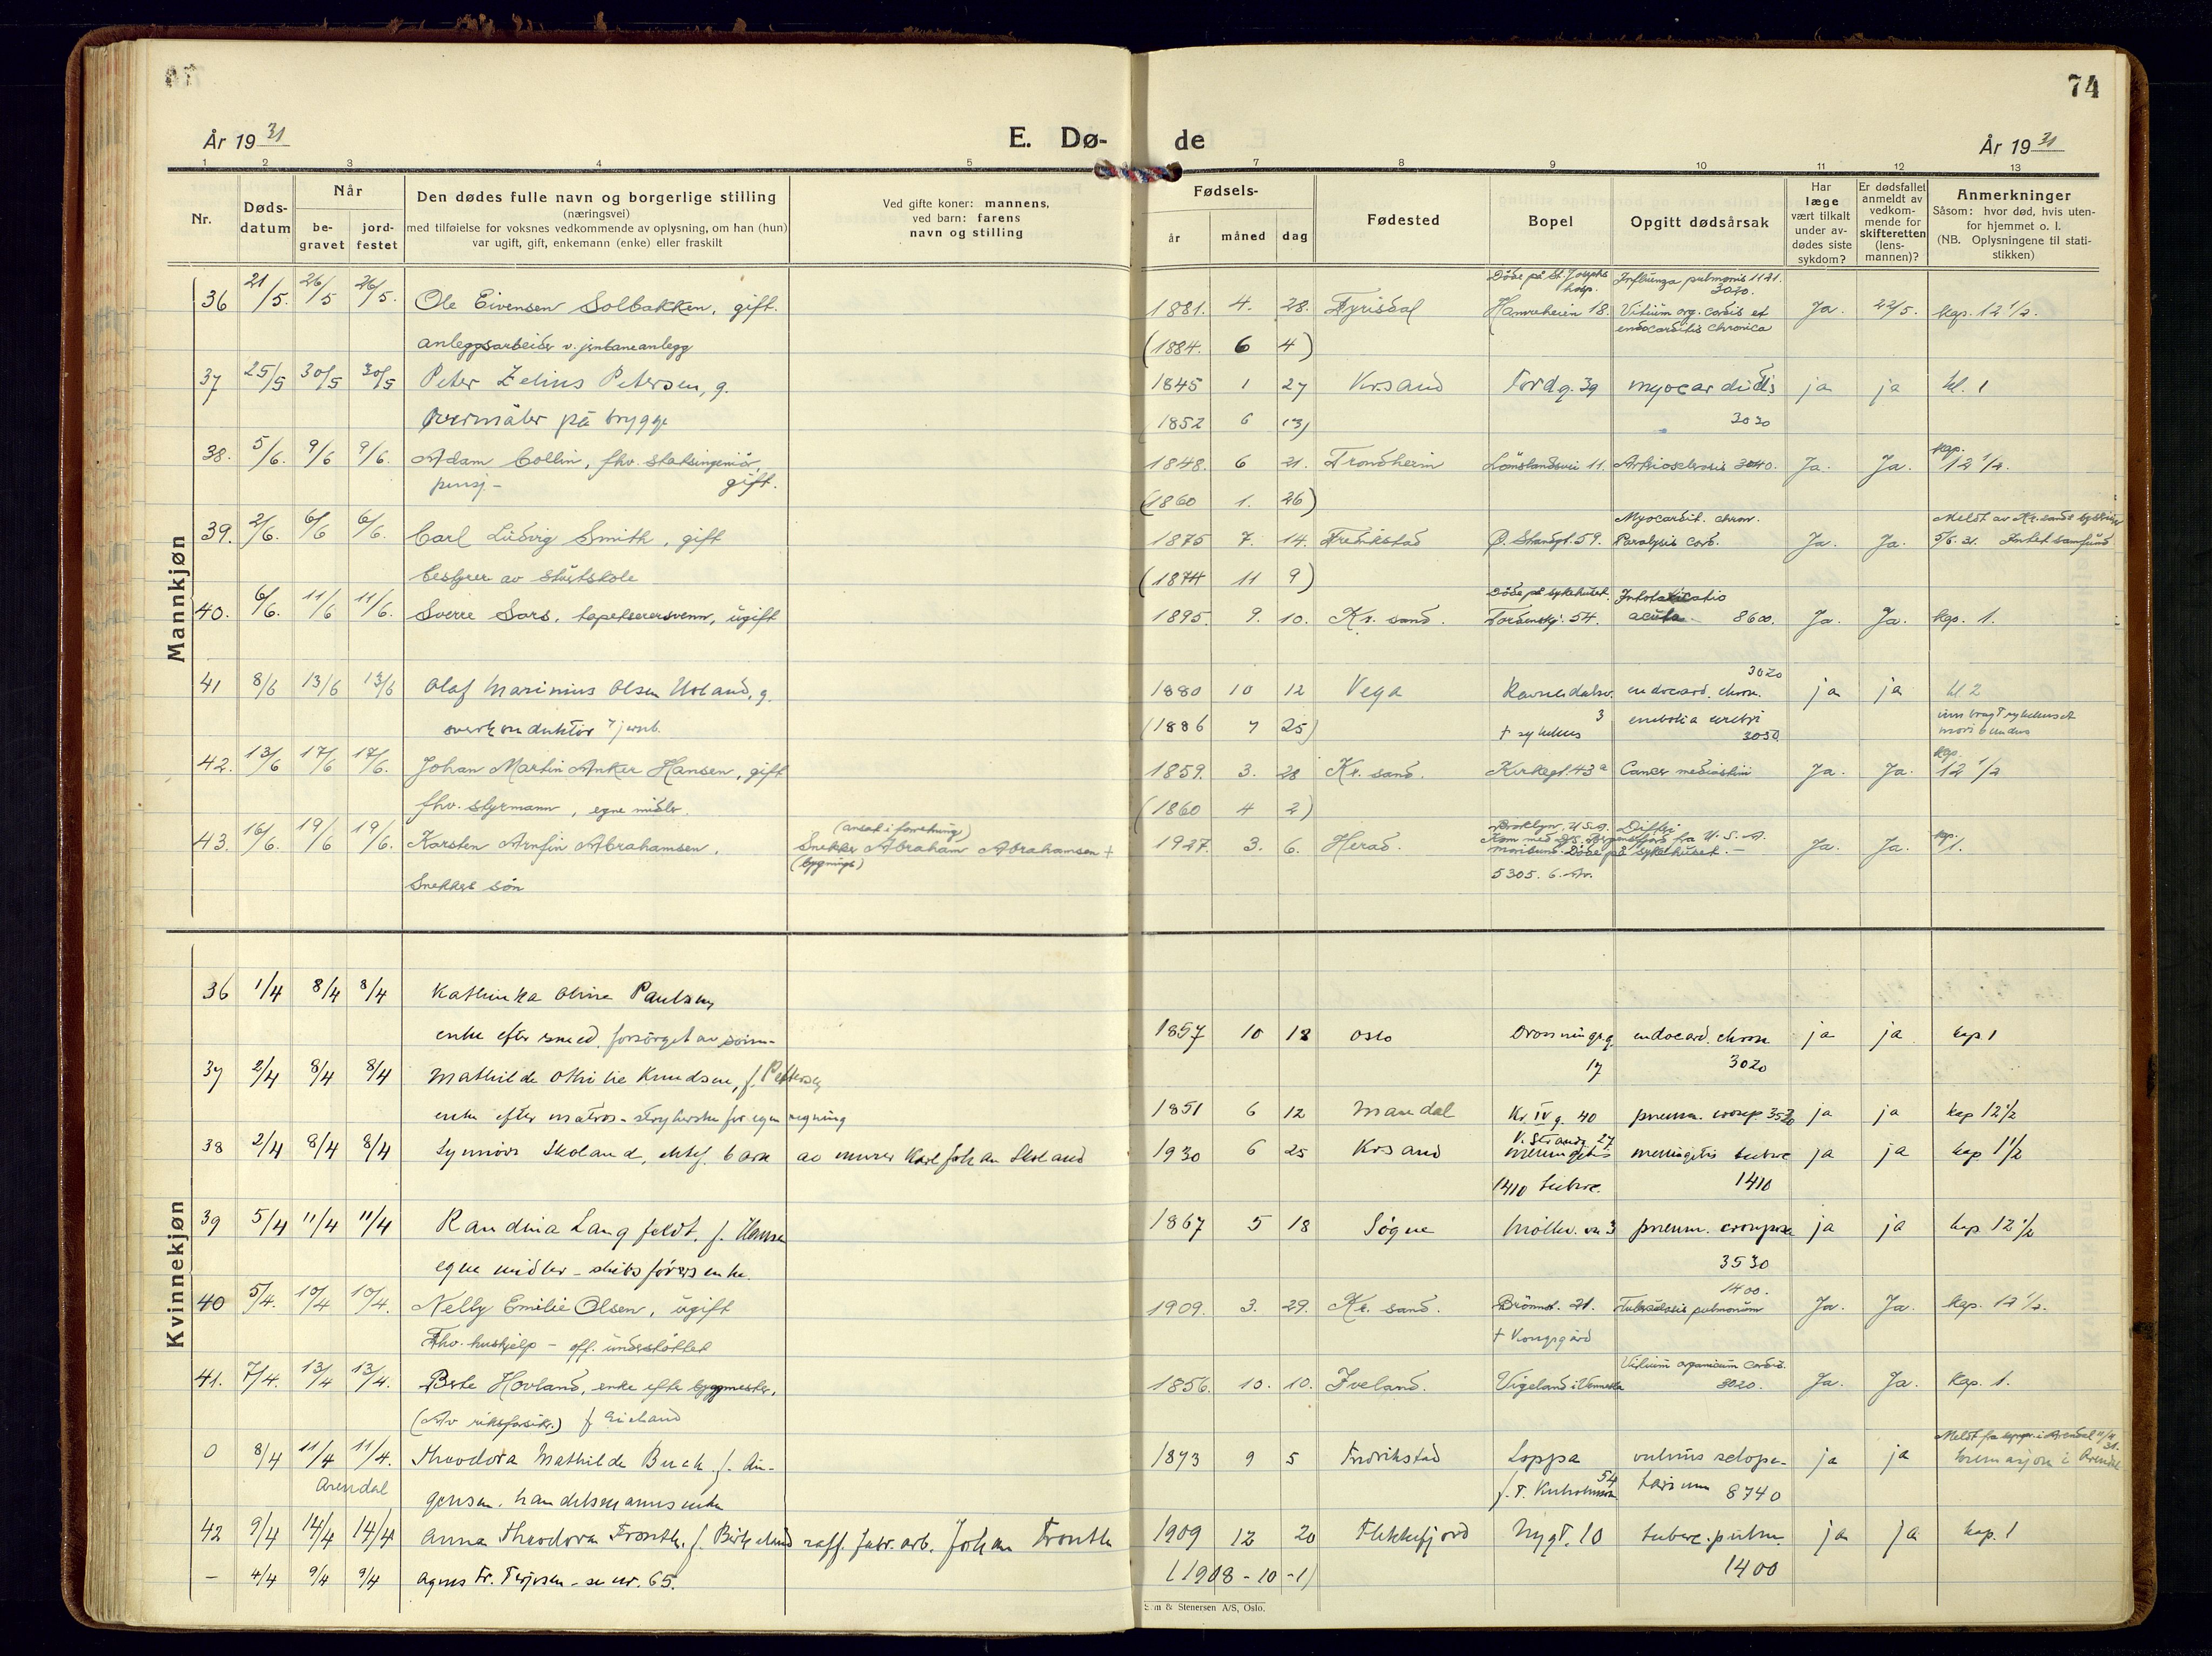 74
År 1931
E. Dø-
de
År 1931
1 2 3 4 5 7 8 9 10 11 12 13
Nr.
Døds-
datum
Når
be-
gravet
jord-
festet
Den dødes fulle navn og borgerlige stilling
(næringsvei)
med tilføielse for voksnes vedkommende av oplysning, om han (hun)
var ugift, gift, enkemann (enke) eller fraskilt
Ved gifte koner: mannens,
ved barn: farens
navn og stilling
Fødsels-
år måned dag
Fødested
Bopel
Opgitt dødsårsak
Har
læge
vært tilkalt
under av-
dødes siste
sykdom?
Er dødsfallet
anmeldt av
vedkom-
mende for
skifteretten
(lens-
mannen)?
Anmerkninger
Såsom: hvor død, hvis uten-
for hjemmet o. l.
(NB. Oplysningene til stati-
stikken)
Mannkjøn
Døde på St. Josephs hosp. Influenza pulmonis 1121.
3020.
36 21/5. 26/5 26/5. Ole Eivensen Solbakken, gift. 1881. 4. 28. Fyrisdal Hamreheien 18. Vitium org. cordis et Ja. 22/5. kap. 12 1/2.
endocarditis chronica
anleggsarbeider v. jernbaneanlegg (1884. 6 4)
37 25/5 30/5 30/5 Peter Zelius Petersen, g. 1845 1 27 Krsand Tordg. 39 myocarditis ja ja kl. 1
Overmåler på brygge 1852 6 3030
38. 5/6. 9/6 9/6. Adam Collin, fhv. statsingeniör, 1848. 6 21. Trondheim Lömslandsvei 11. Artriosclrosis 3040. Ja. Ja. kap. 12 1/2.
pensj. - gift. (1860 1. 26)
Myocardit. chron. Meldt av Kr.sands
39. 2/6. 6/6 6/6. Carl Ludvig Smith, gift 1875 7. 14. Fredrikstad Ø. Standgt. 59. Paralysis cord. Ja. Ja. 5/6. 31.
bestyrer av (1874 11 9)
Døde på sykehuset.
40. 6/6. 11/6 11/6. Sverre Sars, tapetserersvenn, ugift 1895. 9. 10. Kr. sand. Tordenskj. 54. acuta 8600. Ja. Ja. kap. 1.
3020
41 8/6 13/6 13/6 Olaf Marinius Olsen g. 1880 10 12 Vega Ravnedalsv. endocard. chron. ja ja kl 2
overkonduktör v jernb. (1886 7 25) 3 † sykehus embolia cerebri 3050
moribundus
42. 13/6 17/6 17/6. Johan Martin Anker Hansen, gift 1859. 3. 28 Kr. sand. Kirkegt. 43a Cancer mediastini Ja. Ja. kap. 12 1/2
fhv. styrmann, egne midler. (1860 4 2)
(ansat i forretning) Brooklyn, U.S.A. Difteri
43. 16/6. 19/6 19/6. Karsten Arnfin Abrahamsen, Snekker Abraham Abrahamsen † 1927. 3. 6. Herad. Kom med d/s. Bergensfjord fra U.S.A. Ja. Ja. kap. 1.
(bygnings) moribund. Døde på sykehuset. -
Snekkers søn 5305. 6. Av.
Kvinnekjøn
36 1/4 8/4 8/4 Kathinka Oline Paulsen
enke efter smed, forsörget av sönn- 1857 10 18 Oslo Dronningsg. endocard. chron ja ja kap. 1
17 3020
37 2/4 8/4 8/4 Mathilde Othilie Knudsen, f. Pettersen
enke efter matros - strykerske for egen regning 1851 6 12 Mandal Kr. IV g. 40 pneum. croup. 3530 ja ja kap 12 1/2
V. Strandg 27
38 2/4 8/4 8/4 Synnöve Skoland, ektef. barn av murer Karl Johan Skoland 1930 6 25 Krsand meningitis meningitis tuberc ja ja kap. 1 1/2
1410 tuberc. 1410
39 5/4 11/4 11/4 Randina Langfeldt, f. Hansen 1867 5 18 Søgne Möllev. 3 pneum. crouposa ja ja kap 12 1/2
egne midler - skibsförers enke. 3530
1400.
40 5/4. 10/4 10/4. Nelly Emilie Olsen, ugift 1909. 3. 29. Kr. sand. Brönnst. 21. Tuberculosis pulmonum Ja. Ja. Kap. 12 1/2.
Fhv. hushjelp - off. understöttet † Kongsgård
Vitium organicum cordis.
41. 7/4. 13/4 13/4. Berte Hovland, enke efter byggmester, 1856. 10. 10. Iveland. Vigeland i Vennesla 3020. Ja. Ja. Kap. 1.
(Av riksforsikr.) f Eieland
Meldt fra i Arendal
0 8/4 11/4 11/4. Theodora Mathilde Buck f. Au- 1873 9 5 Fredrikstad Loppa vulnus sclope- ja ja kremasjon i Arendal
Arendal
gensen, handelsmanns enke 54 tarium 8740
42 9/4 14/4 14/4 Anna Theodora f. Birkeland raff. fabr. arb. Johan 1909 12 20 Flekkefjord Nygt. 10 tuberc. pulm. ja ja kap. 1
- 4/4 9/4 9/4 Agnes Fr. Terjesen - se nr. 65. (1908 - 10 - 1) 1400
& Stenersen A/S, Oslo.